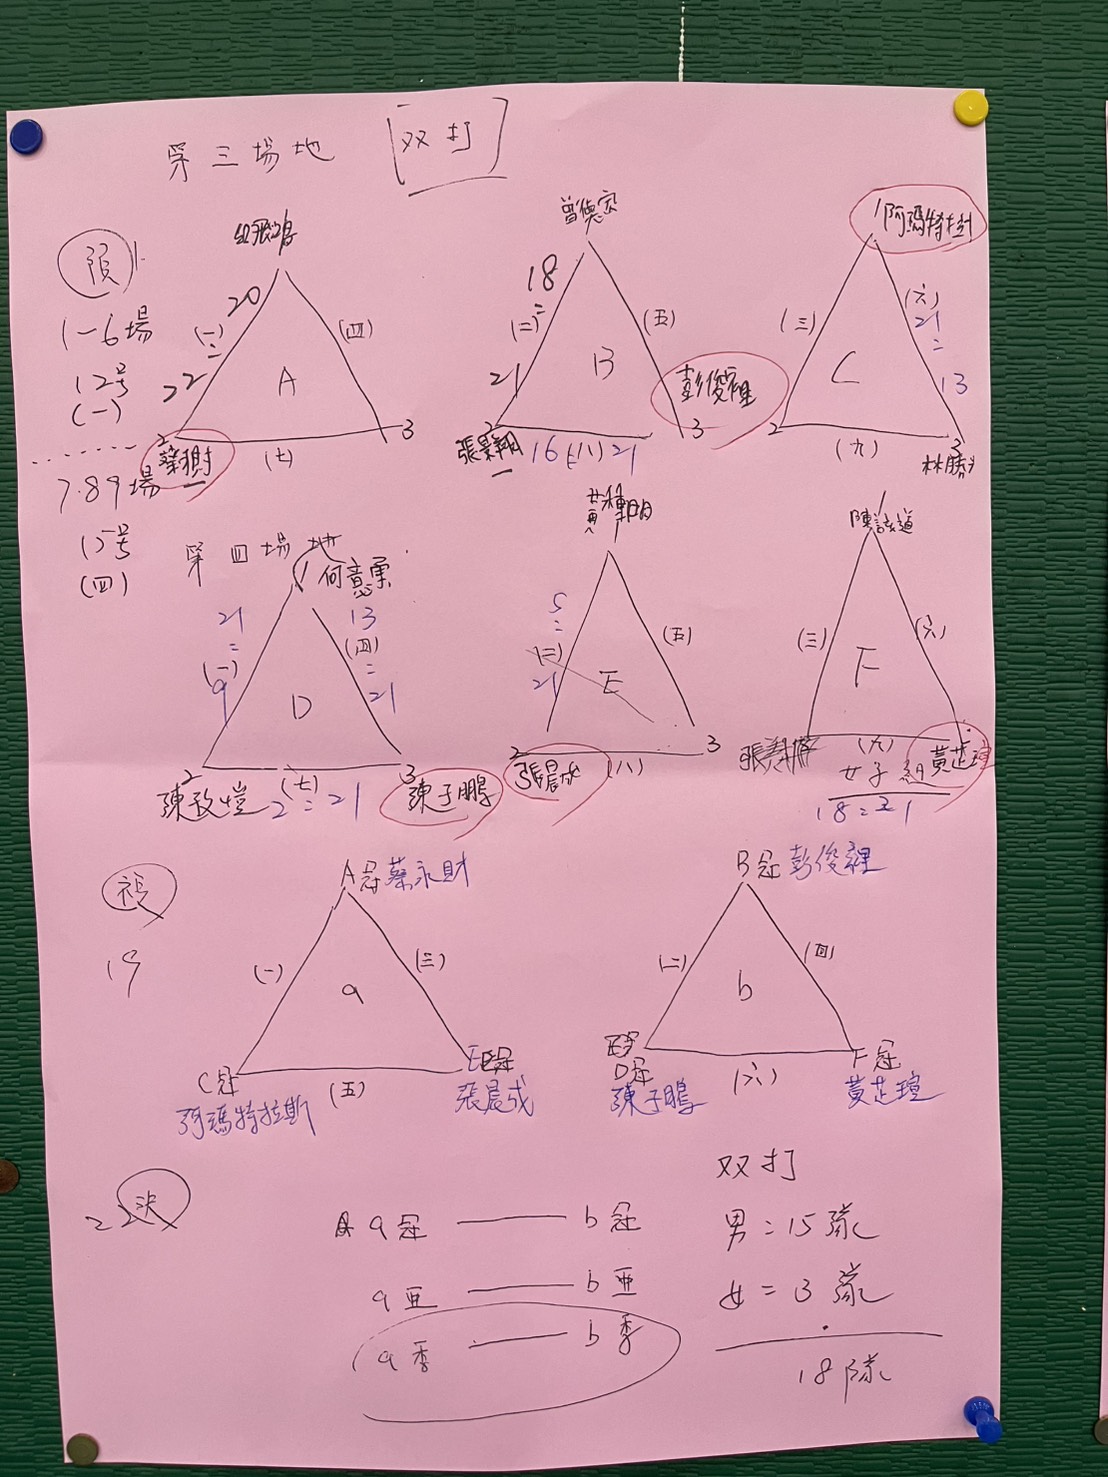 第三場地 [双打]
預
1-6場
12号
(一)
7.8.9場
15号
(四)
20
(一)
=
22
(四)
A
2
3
(七)
曾德安
18
(二)
=
21
(五)
B
彭俊裡
2
3
張景翔 16 (八) 21
1 阿瑪特拉斯
(三)
(六)
21
=
13
C
2
3
(九)
林勝
第四場地
何意
21
=
(一)
9
13
(四)
=
21
D
2
3
陳孜愷
(七)
2=21
陳子鵬
5
=
(二)
21
(五)
E
2
3
張晨成
(八)
陳
(三)
(六)
F
(九)
女子組
黃芷瑄
18=21
複
19
A冠 蔡永財
(一)
(三)
a
C冠
阿瑪特拉斯
(五)
E冠
張晨成
B冠 彭俊裡
(二)
(四)
b
D冠
陳子鵬
(六)
F冠
黃芷瑄
決
22
a冠 — b冠
a亜 — b亜
a季 — b季
双打
男=15隊
女=3隊
18隊